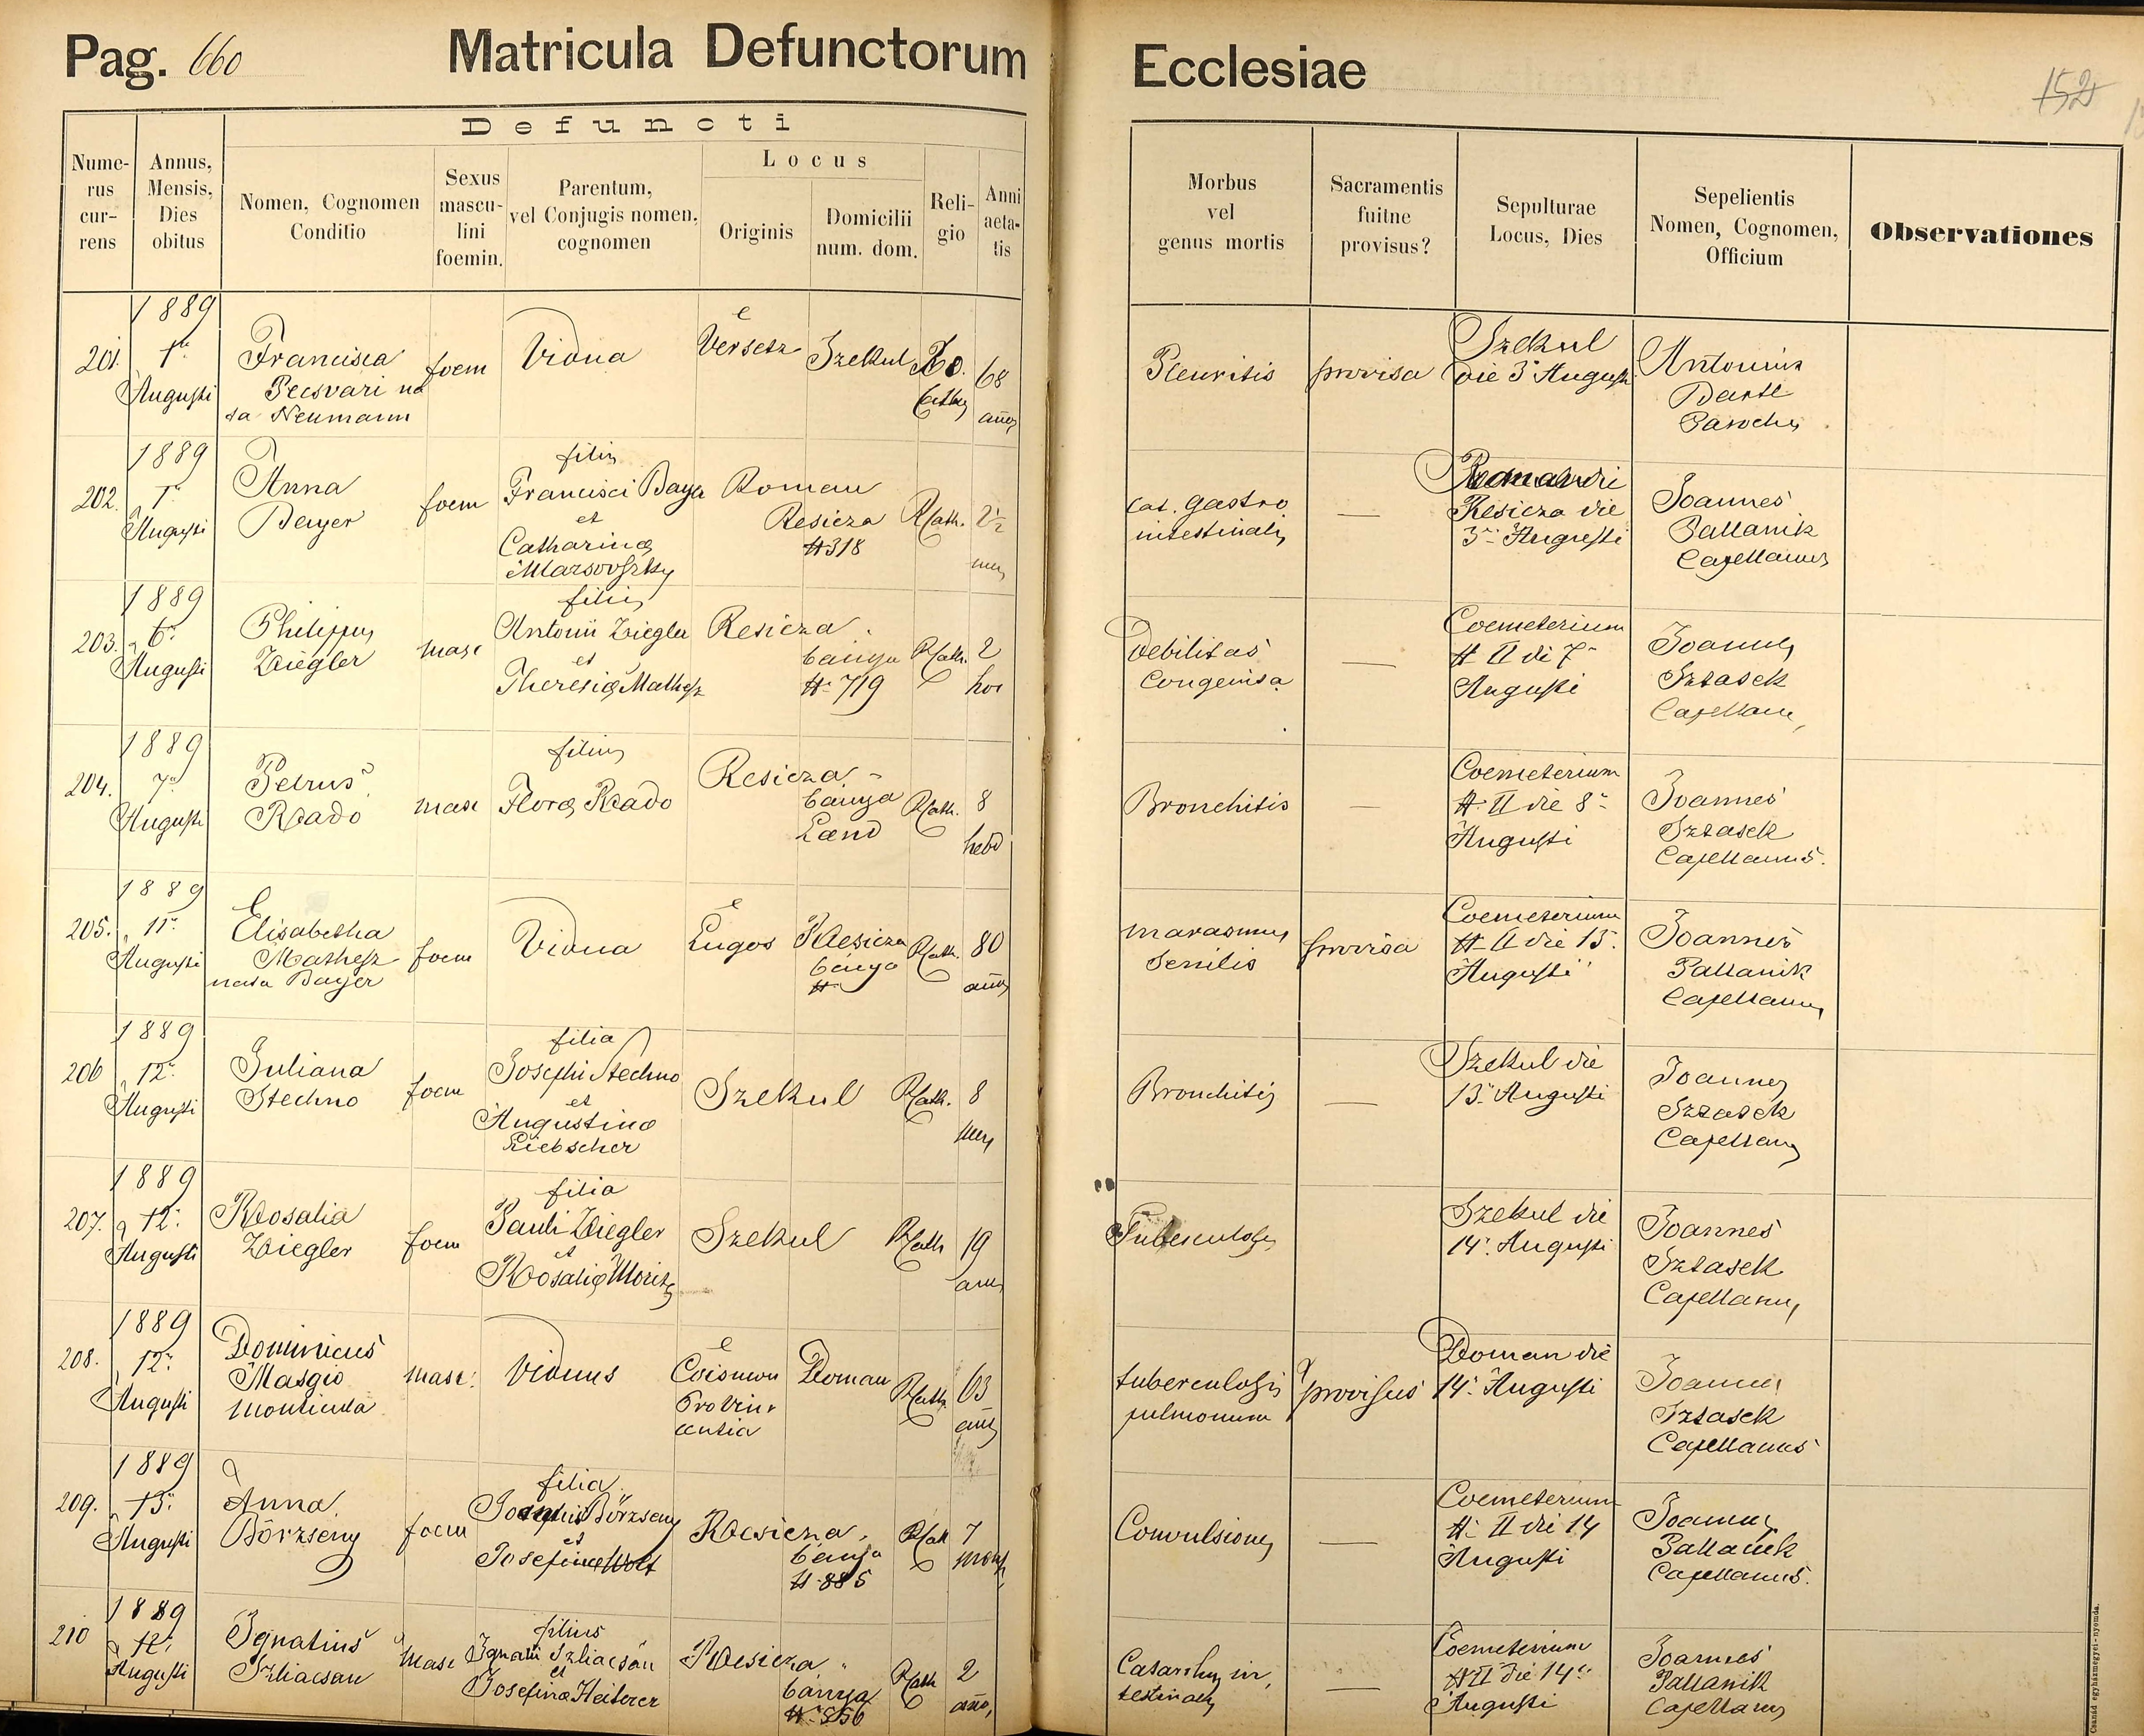 Pag. 660 Matricula Defunctorum Ecclesiae
152
Defuncti
Numerus currens
Annus, Mensis, Dies obitus
Nomen, Cognomen Conditio
Sexus masculini foemin.
Parentum, vel Conjugis nomen, cognomen
Locus
Originis
Domicilii num. dom.
Religio
Anni aetatis
Morbus vel genus mortis
Sacramentis fuitne provisus?
Sepulturae Locus, Dies
Sepelientis Nomen, Cognomen, Officium
Observationes
201. 1889 1a Augusti
Francisca Pecsvari nata Neumann
foem Vidua Versetz Szekul 68
Pleuritis provisa Szekul die 3a Augusti
Antonius Bartl Parochus
202. 1889 1a Augusti
Anna Bayer
foem
Francisci Baya et Catharina
Roman Resicza # 318 R Cath. 2½
Cat. gastro intestinalis —
Resicza die 3a Augusti
Joannes Pallanik Capellanus
203. 1889 6a Augusti
Philippus Ziegler
masc
filius Antonii Ziegler et Theresia Mathesz
Resicza bánya # 719 R Cath. 2 hor
Debilitas Congenita —
Coemeterium # II die 7a Augusti
Joannes Sztasek Capellanus
204. 1889 7a Augusti
Petrus Rado
masc
filius Flora Rado
Resicza bánya Land R Cath. 8 hebd
Bronchitis —
Coemeterium # II die 8a Augusti
Joannes Sztasek Capellanus.
205. 1889 11a Augusti
Elisabetha Mathesz nata Bayer
foem Vidua Lugos Resicza bánya # R Cath. 80
marasmus senilis provisa
Coemeterium # II die 13. Augusti
Joannes Pallanik Capellanus
206 1889 12a Augusti
Juliana Stechno
foem
filia Josephi Stechno et Augustina Liebscher
Szekul R Cath. 8
Bronchitis —
Szekul die 13a Augusti
Joannes Sztasek Capellanus
207. 1889 12a Augusti
Rosalia Ziegler
foem
filia Pauli Ziegler et Rosalia Moritz
Szekul R Cath 19
Tuberculosis
Szekul die 14a Augusti
Joannes Sztasek Capellanus
208. 1889 12a Augusti
Dominicus Masgio
masc. Viduus Doman R Cath. 63
tuberculosis pulmonum provisus
Doman die 14a Augusti
Joannes Sztasek Capellanus
209. 1889 13a Augusti
Anna Börzseny
foem
filia Börzseny et Josefina Wolf
Resicza bánya # 885 R Cath 7
Convulsiones —
Coemeterium # II die 14 Augusti
Joannes Pallanik Capellanus.
210 1889 12a Augusti
Ignatius Szliacsan
masc
filius Ignatii Szliacsán et Josefina Heiterer
Resicza bánya # 856 R Cath 2
Catarrhus intestinalis —
Coemeterium # II die 14a Augusti
Joannes Pallanik Capellanus
Csanád egyházmegyei-nyomda.